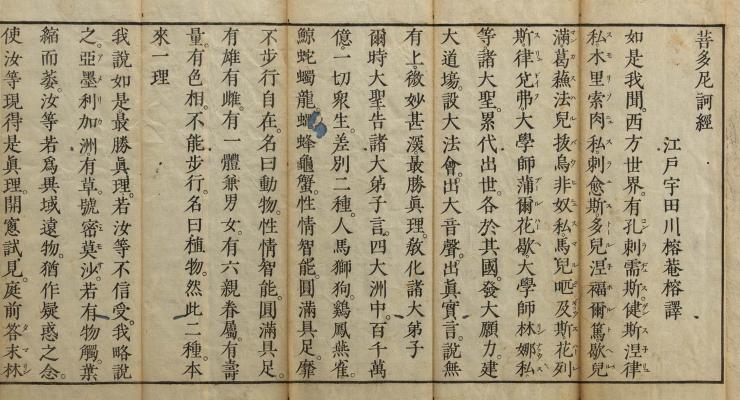 菩多尼訶經
江戸宇田川榕菴榕譯
如是我聞。西方世界。有孔剌需斯。健斯涅律
私。木里索肉私。刺愈斯。多兒涅福爾篤歇兒
滿。葛蘓法兒拔烏非奴私。馬兒 及斯花列
斯。律 弗大學師。蒲爾花歇大學師。林娜私
等諸大聖。累代出世。各於其國。發大願力。建
大道場。設大法會。出大音聲。出眞實言。說無
有上。微妙甚深。最勝眞理。敎化諸大弟子
爾時大聖告諸大弟子言。四大洲中。百千萬
億。一切衆生。差別二種。人馬獅狗。鷄鳳燕雀。
鯨蛇蠋龍。蠅蜂龜蟹。性情智能。圓滿具足。靡
不步行自在。名曰動物。性情智能。圓滿具足。
有雄有雌。有一體兼男女。有六親眷屬。有壽
量。有色相。不能步行。名曰植物。然此二種。本
來一理
我說如是最勝眞理。若汝等不信受。我略說
之。亞墨利加洲有草。號密莫沙。若有物觸。葉
縮而萎。汝等若爲異域遠物。猶作疑惑之念。
使汝等現得是眞理。開窻試見。庭前答末林